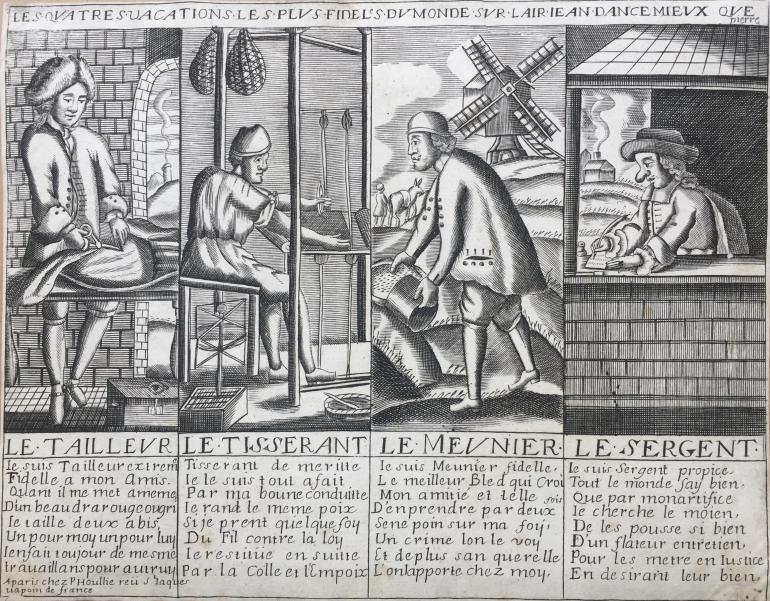 LES QVATRES VACATIONS LES PLUS FIDEL'S DV MONDE SVR L'AIR IEAN DANCE MIEUX QVE
pierre
LE TAILLEVR
Ie suis Tailleur extrem
Fidelle a mon Amis.
Quant il me met ameme
D'un beau dra rouge ou gri
Ie taille deux abis,
Un pour moy un pour luy
Ien fait toujor de mesme
travaillans pour autruy
Aparis chez P. Houllie reü S Iaques
va poin de france
LE TISSERANT
Tisserant de meritte
Ie le suis tout afait
Par ma boune conduitte
Ie rand le meme poix
Si je prent quelque foy
Du Fil contre la loy
Ie restitüe en suitte
Par la Colle et l'Empoix
LE MEVNIER
Ie suis Meunier fidelle,
Le meilleur Bled qui Croi
Mon amitié et telle
fois
D'en prendre par deux
Sene poin sur ma foy,
Un crime lon le voy
Et de plus san querelle
L'on lapporte chez moy,
LE SERGENT
Ie suis Sergent propice
Tout le monde say bien,
Que par mon artifice
Ie cherche le moien,
De les pousse si bien
D'un flateur entretien,
Pour les metre en Iustice
En desirant leur bien,